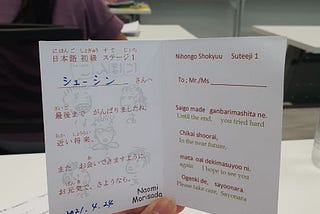 にほんご しょきゅう すてじ
日本語 初級 ステージ1
シェーシン さんへ
さいご
最後まで がんばりましたね。
ちか しょうらい
近い将来、
あ
また お会いできますように
げんき
お元気で、さようなら。
Naomi
Morisada
2021. 4. 24
Nihongo Shokyuu Suteeji 1
To ; Mr./Ms
Saigo made ganbarimashita ne.
Until the end, you tried hard
Chikai shoorai,
In the near future,
mata oai dekimasuyoo ni.
again I hope to see you
Ogenki de, sayoonara.
Please take care, Sayonara